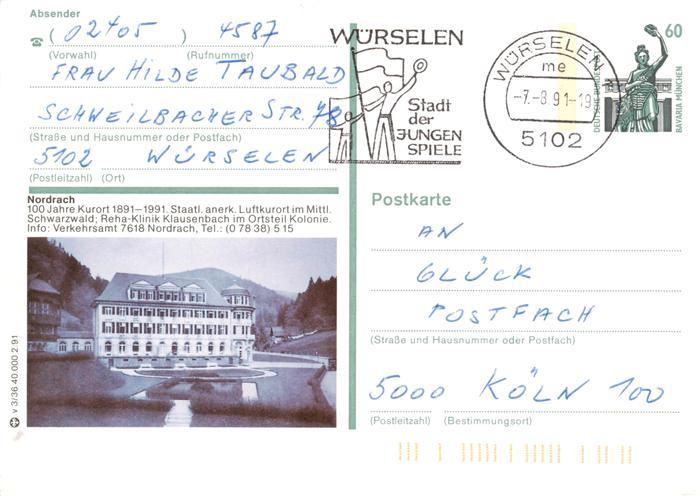 Absender
☎ ( 02405 ) 4587
(Vorwahl) (Rufnummer)
FRAU HILDE TAUBALD
SCHWEILBACHER STR. 78
(Straße und Hausnummer oder Postfach)
5102 WÜRSELEN
(Postleitzahl) (Ort)
WÜRSELEN
Stadt
der
JUNGEN
SPIELE
WÜRSELEN
me
-7.-8.91-19
5102
60
DEUTSCHE BUNDES
BAVARIA MÜNCHEN
Nordrach
100 Jahre Kurort 1891–1991. Staatl. anerk. Luftkurort im Mittl.
Schwarzwald; Reha-Klinik Klausenbach im Ortsteil Kolonie.
Info: Verkehrsamt 7618 Nordrach, Tel.: (0 78 38) 5 15
v 3/36 40.000 2.91
Postkarte
AN
GLÜCK
POSTFACH
(Straße und Hausnummer oder Postfach)
5000 KÖLN 100
(Postleitzahl) (Bestimmungsort)